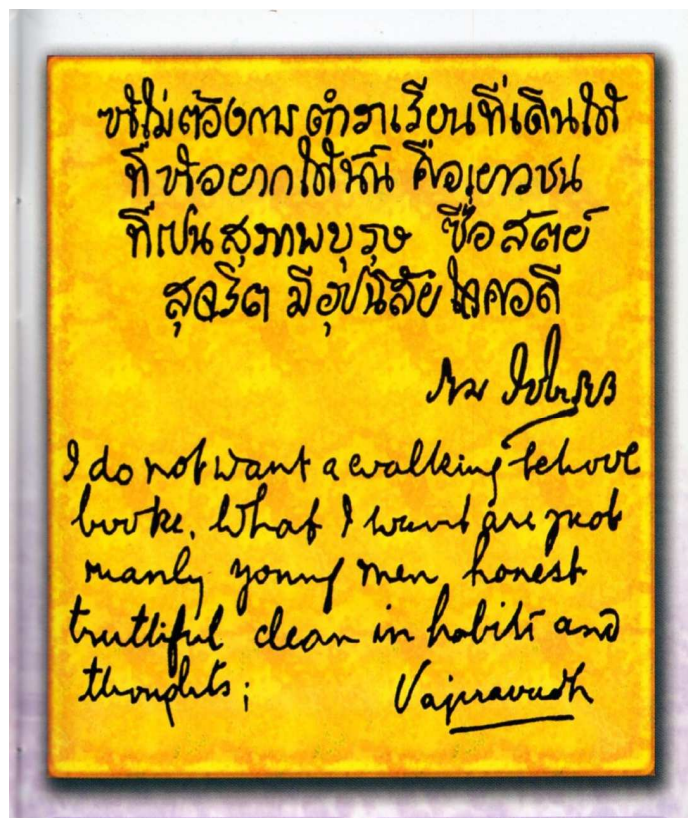 ข้าไม่ต้องการตำราเรียนที่เดินได้
ที่ข้าอยากได้นั้น คือเยาวชน
ที่เป็นสุภาพบุรุษ ซื่อสัตย์
สุจริต มีอุปนิสัยใจคอดี
ราม วชิราวุธ
I do not want a walking school
booke. What I want are just
manly young men honest
truthful clean in habits and
thoughts;
Vajiravudh